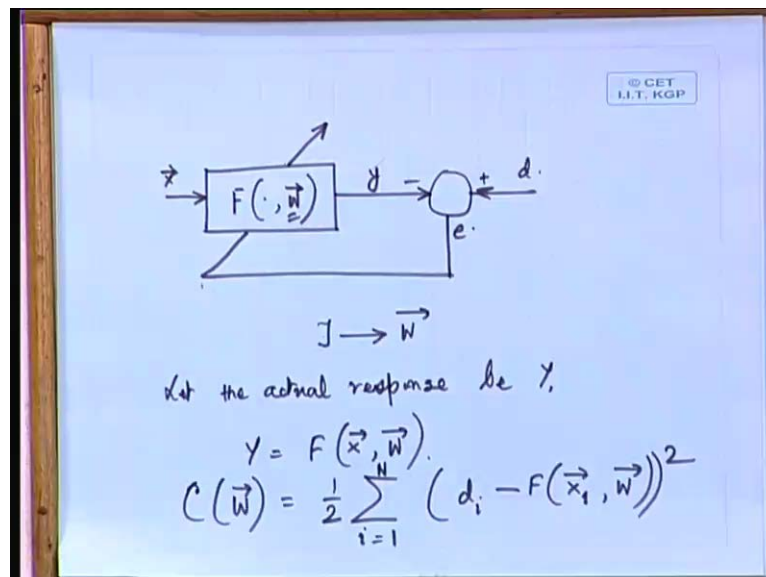 © CET
I.I.T. KGP
x⃗
F(·, w⃗)
y
−
+
d.
e.
J → w⃗
Let the actual response be Y,
Y = F(x⃗, w⃗).
C(w⃗) = 1/2 ∑_{i=1}^{N} (d_i − F(x⃗_1, w⃗))^2